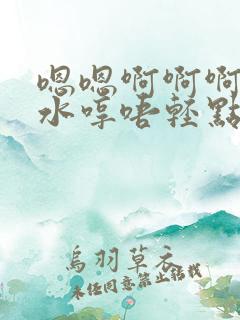 嗯嗯啊啊啊
水哼唔轻點
烏羽草衣
未经同意禁止转载